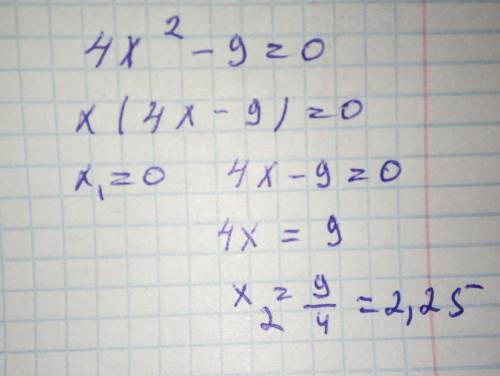 4x² - 9 = 0
x(4x - 9) = 0
x₁ = 0 4x - 9 = 0
4x = 9
x₂ = 9/4 = 2,25